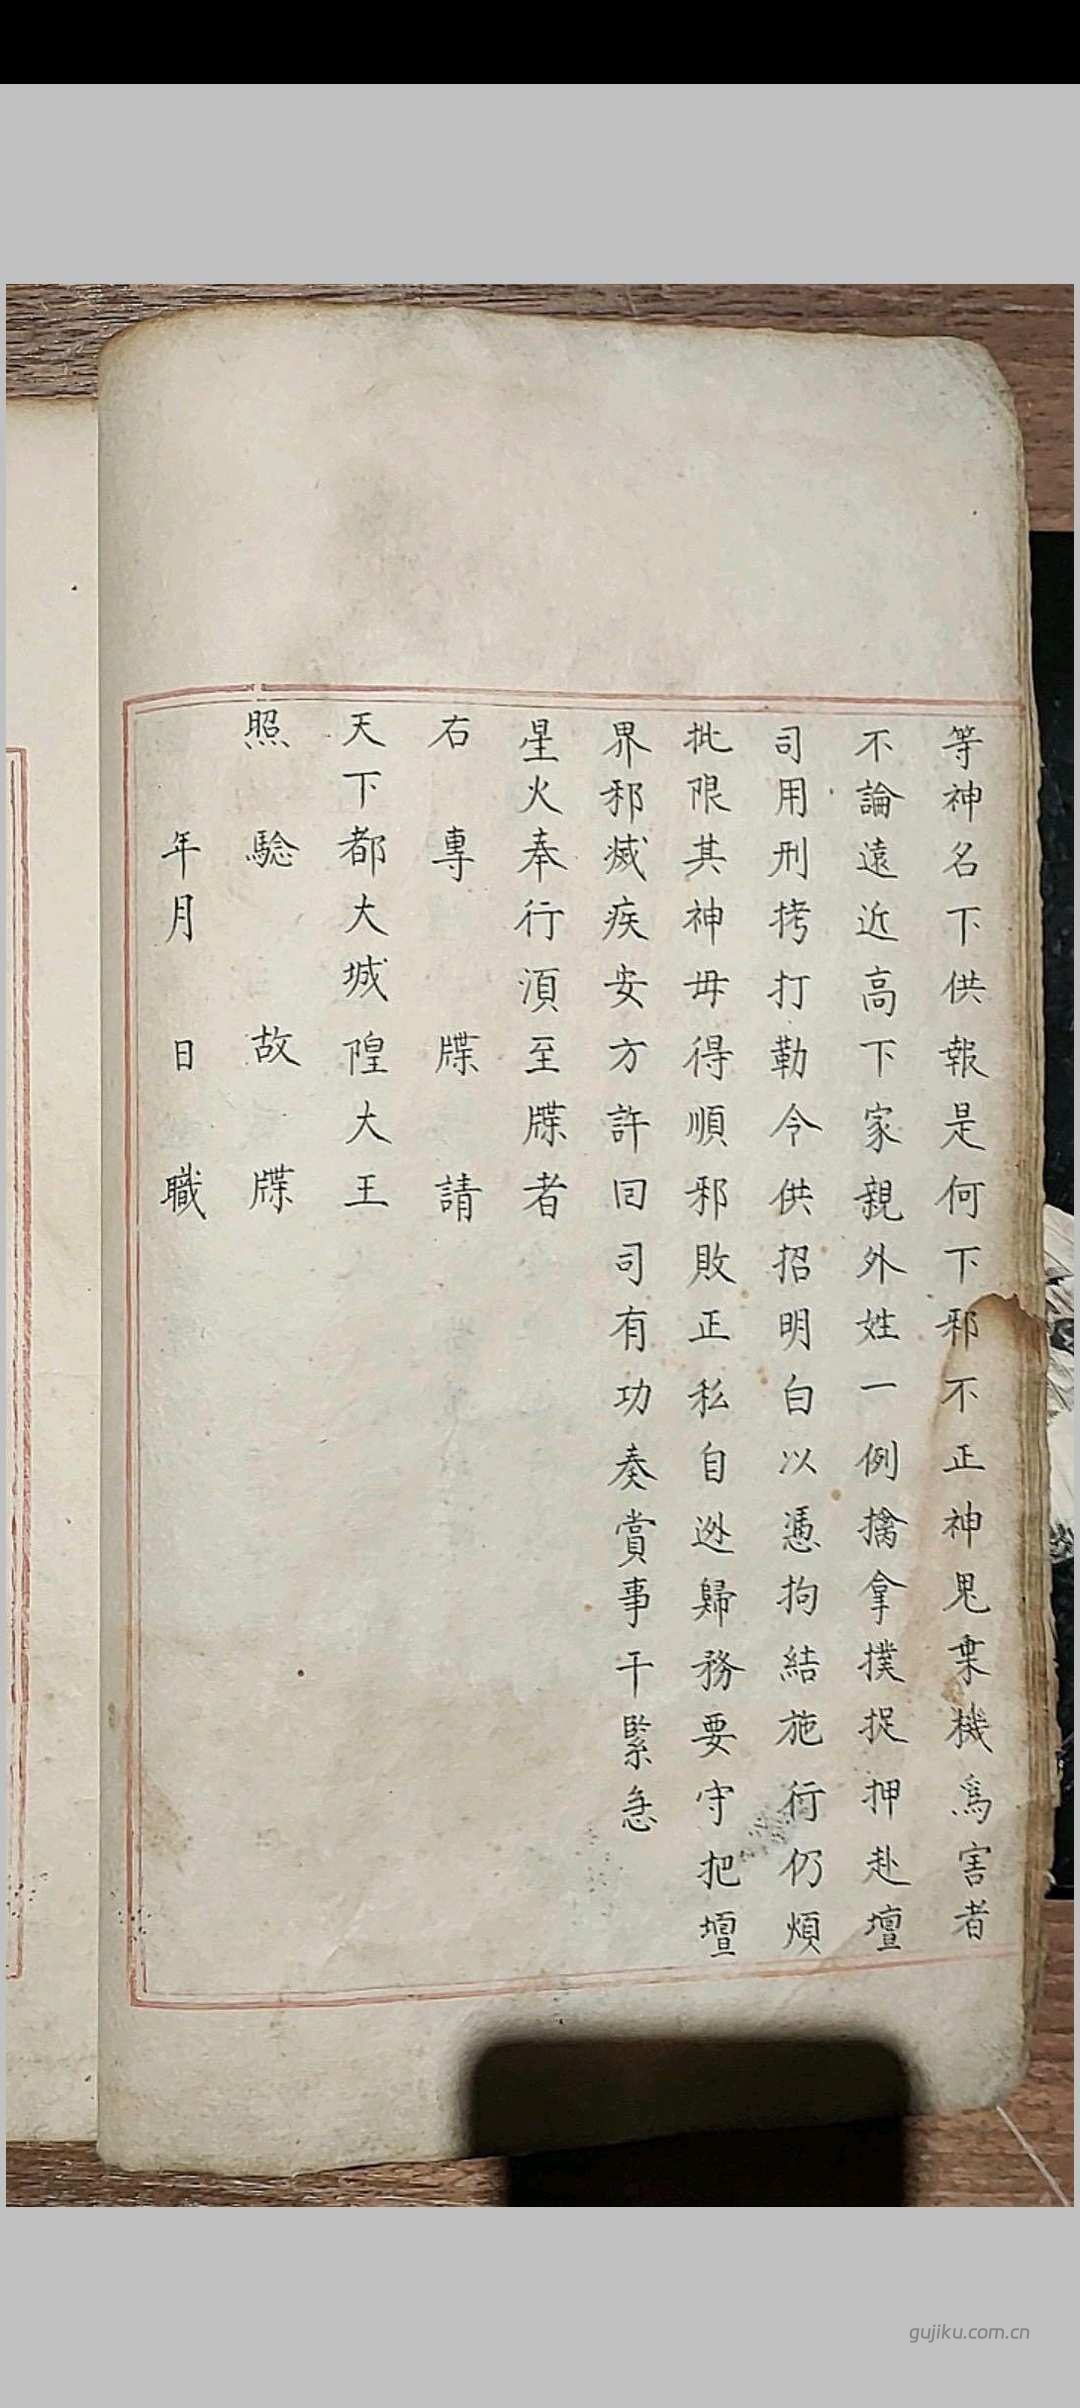 等神名下供報是何下邪不正神鬼乗機爲害者
不論遠近高下家親外姓一例擒拿撲捉押赴壇
司用刑拷打勒令供招明白以憑拘結施行仍煩
批限其神毋得順邪敗正私自迯歸務要守把壇
界邪滅疾安方許囙司有功奏賞事干緊急
星火奉行湏至牒者
右專牒請
天下都大城隍大王
照騐故牒
年月日職
gujiku.com.cn